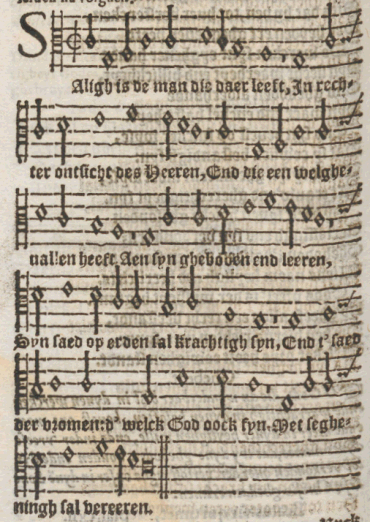 SAligh is de man dis daer leeft, In rech-
ter ontsicht des Heeren, End die een welghe-
uallen heeft Aen syn gheboden end leeren,
Syn saed op erden sal krachtigh syn, End t' saed
der vromen: d' welck God oock syn. Met seghe-
ningh sal vereeren.